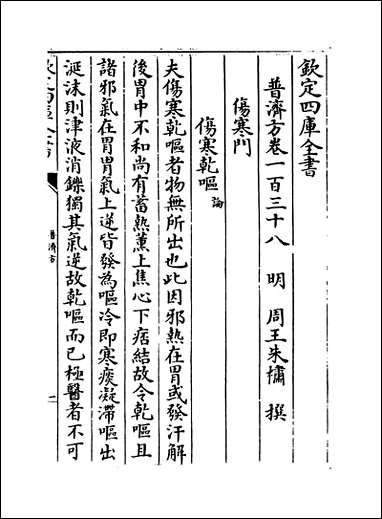 欽定四庫全書
普濟方卷一百三十八　明　周王朱橚　撰
傷寒門
傷寒乾嘔論
夫傷寒乾嘔者物無所出也此因邪熱在胃或發汗解
後胃中不和尚有蓄熱薰上焦心下痞結故令乾嘔且
諸邪氣在胃胃氣上逆皆發為嘔冷即寒痰凝滯嘔出
涎沫則津液消鑠獨其氣逆故乾嘔而已極醫者不可
普濟方